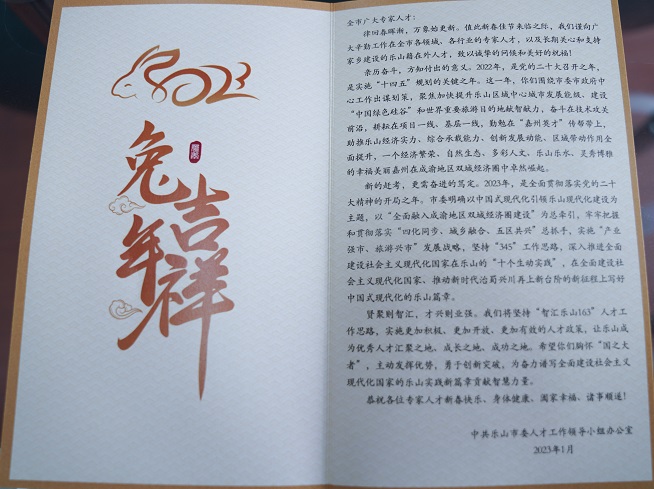 2023
兔年
吉祥
全市广大专家人才：
律回春晖渐，万象始更新。值此新春佳节来临之际，我们谨向广
大辛勤工作在全市各领域、各行业的专家人才，以及长期关心和支持
家乡建设的乐山籍在外人才，致以诚挚的问候和美好的祝福！
亲历奋斗，方知付出的意义。2022年，是党的二十大召开之年，
是实施“十四五”规划的关键之年。这一年，你们围绕市委市政府中
心工作出谋划策，聚焦加快提升乐山区域中心城市发展能级、建设
“中国绿色硅谷”和世界重要旅游目的地献智献力，奋斗在技术攻关
前沿，耕耘在项目一线、基层一线，勤勉在“嘉州英才”传帮带上，
助推乐山经济实力、综合承载能力、创新发展动能、区域带动作用全
面提升，一个经济繁荣、自然生态、多彩人文、乐山乐水、灵秀博雅
的幸福美丽嘉州在成渝地区双城经济圈中卓然崛起。
新的赶考，更需奋进的笃定。2023年，是全面贯彻落实党的二十
大精神的开局之年。市委明确以中国式现代化引领乐山现代化建设为
主题，以“全面融入成渝地区双城经济圈建设”为总牵引，牢牢把握
和贯彻落实“四化同步、城乡融合、五区共兴”总抓手，实施“产业
强市、旅游兴市”发展战略，坚持“345”工作思路，深入推进全面
建设社会主义现代化国家在乐山的“十个生动实践”，在全面建设社
会主义现代化国家、推动新时代治蜀兴川再上新台阶的新征程上写好
中国式现代化的乐山篇章。
贤聚则智汇，才兴则业强。我们将坚持“智汇乐山163”人才工
作思路，实施更加积极、更加开放、更加有效的人才政策，让乐山成
为优秀人才汇聚之地、成长之地、成功之地。希望你们胸怀“国之大
者”，主动发挥优势，勇于创新突破，为奋力谱写全面建设社会主义
现代化国家的乐山实践新篇章贡献智慧力量。
恭祝各位专家人才新春快乐、身体健康、阖家幸福、诸事顺遂！
中共乐山市委人才工作领导小组办公室
2023年1月